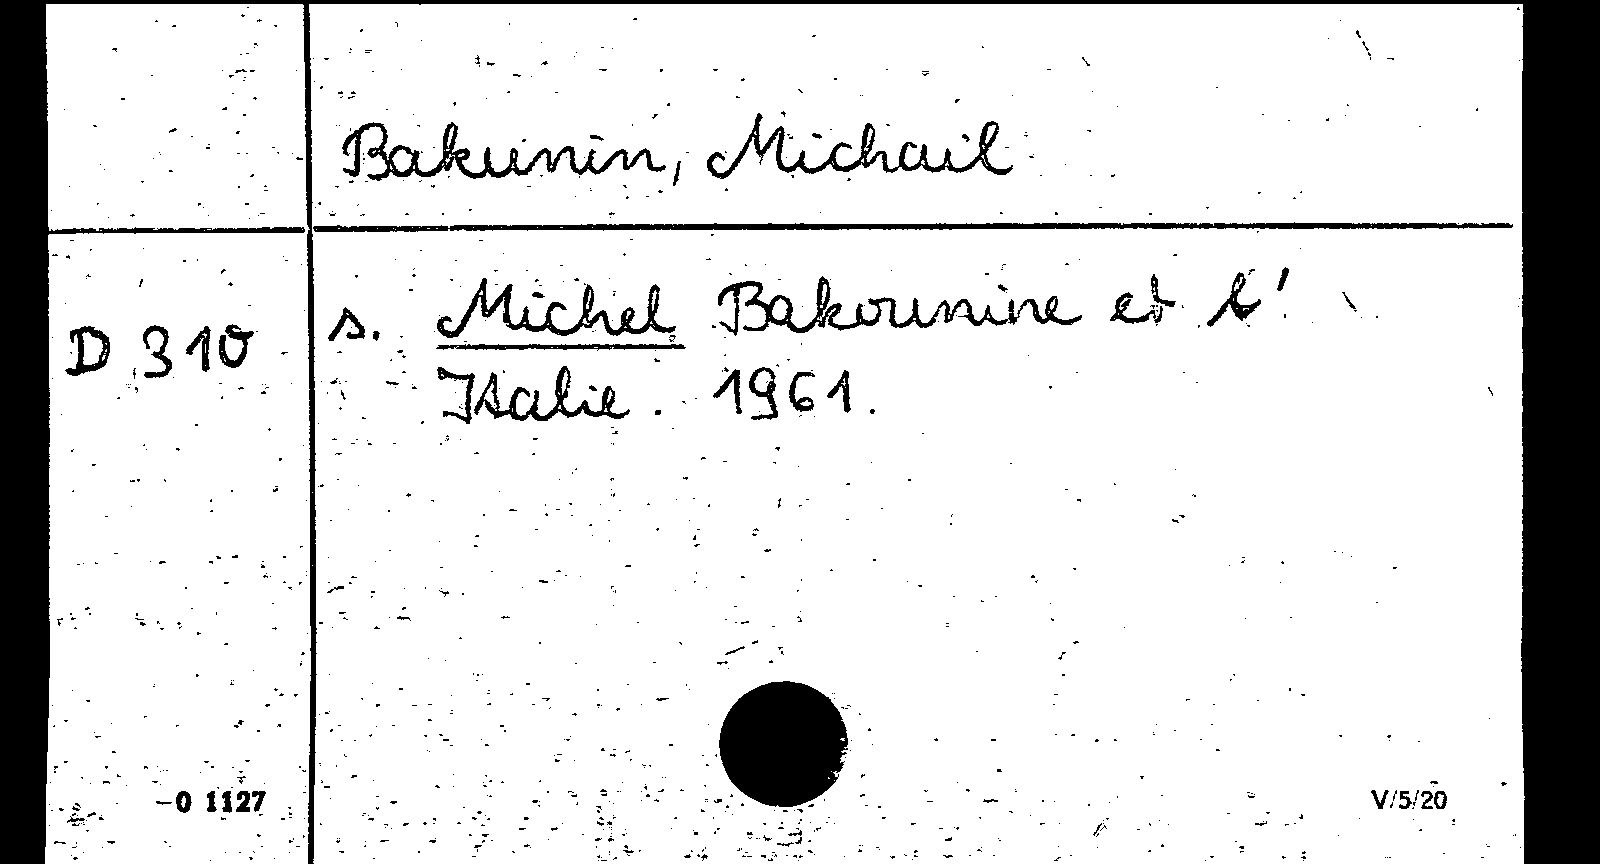 Bakunin, Michail
D 310
s. Michel Bakounine et l'
Italie. 1961.
-0 1127
V/5/20